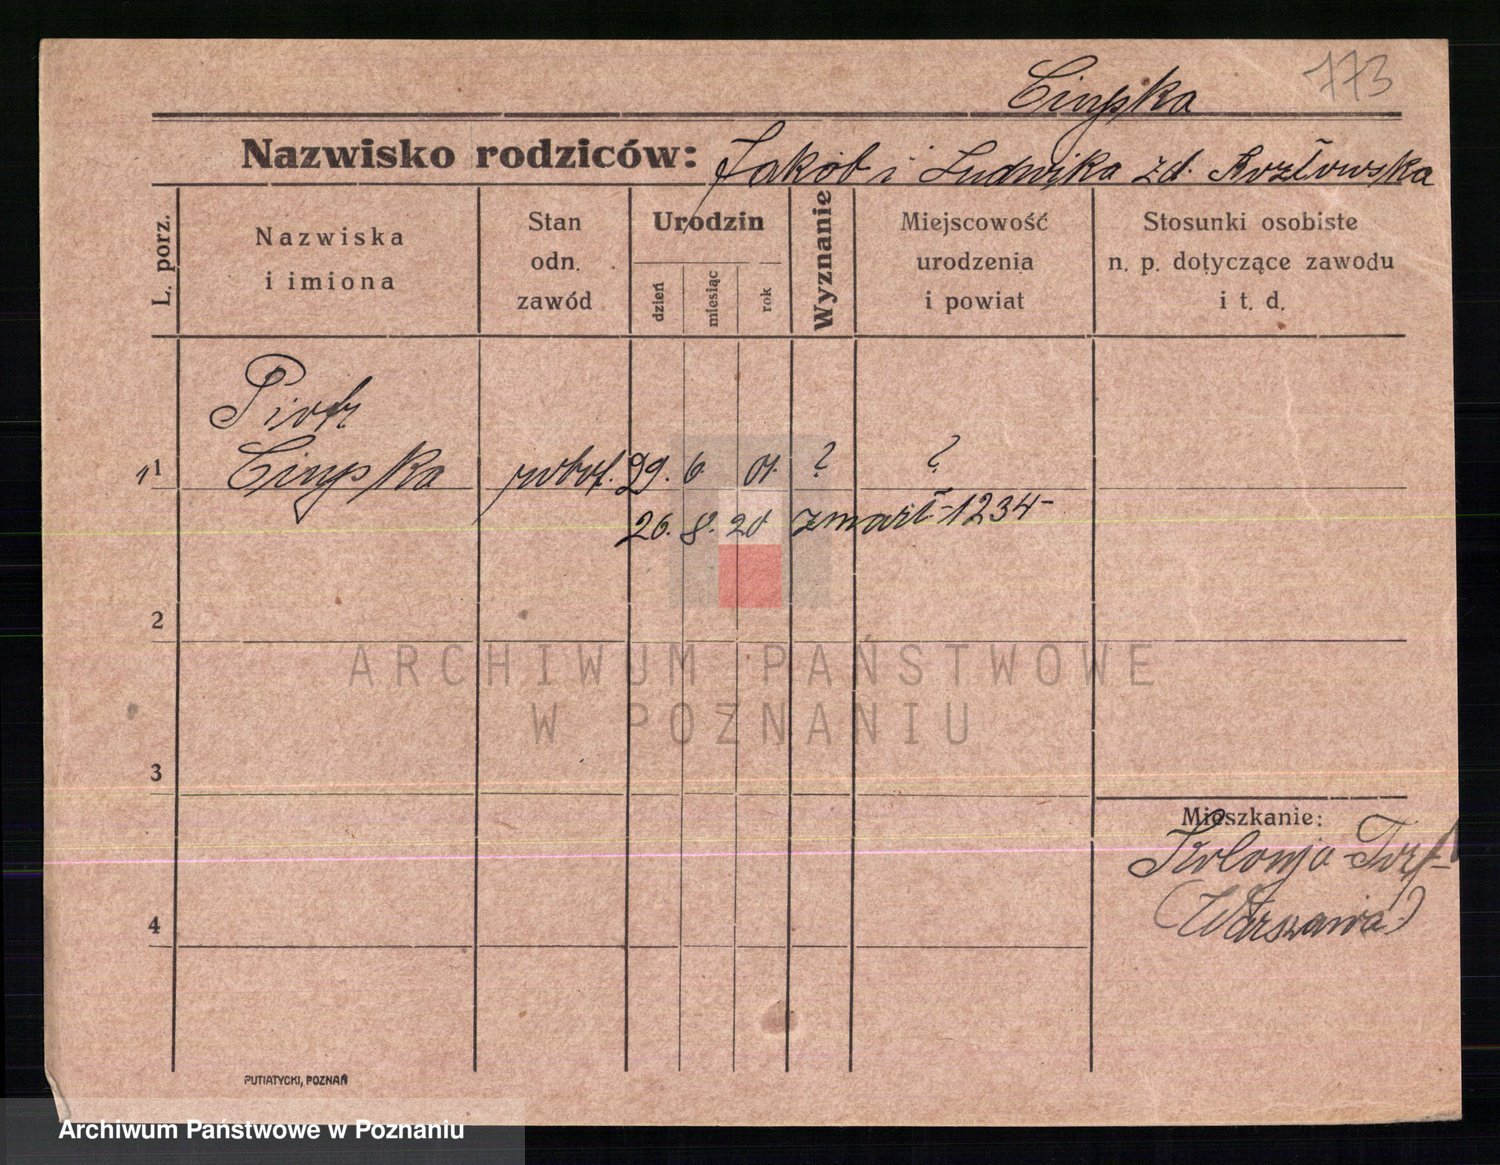 773
Cinpka
Nazwisko rodziców: Jakób i Ludwika zd. Kozłowska
L. porz.
Nazwiska
i imiona
Stan
odn.
zawód
Urodzin
dzień
miesiąc
rok
Wyznanie
Miejscowość
urodzenia
i powiat
Stosunki osobiste
n. p. dotyczące zawodu
i t. d.
Piotr
1 1 Cinpka robot. 29. 6. 01. ? ?
26. 8. 20 zmarł -1234-
2
ARCHIWUM PAŃSTWOWE
W POZNANIU
3
Mieszkanie:
Kolonja-Torf-
(Warszawa)
4
PUTIATYCKI, POZNAŃ
Archiwum Państwowe w Poznaniu